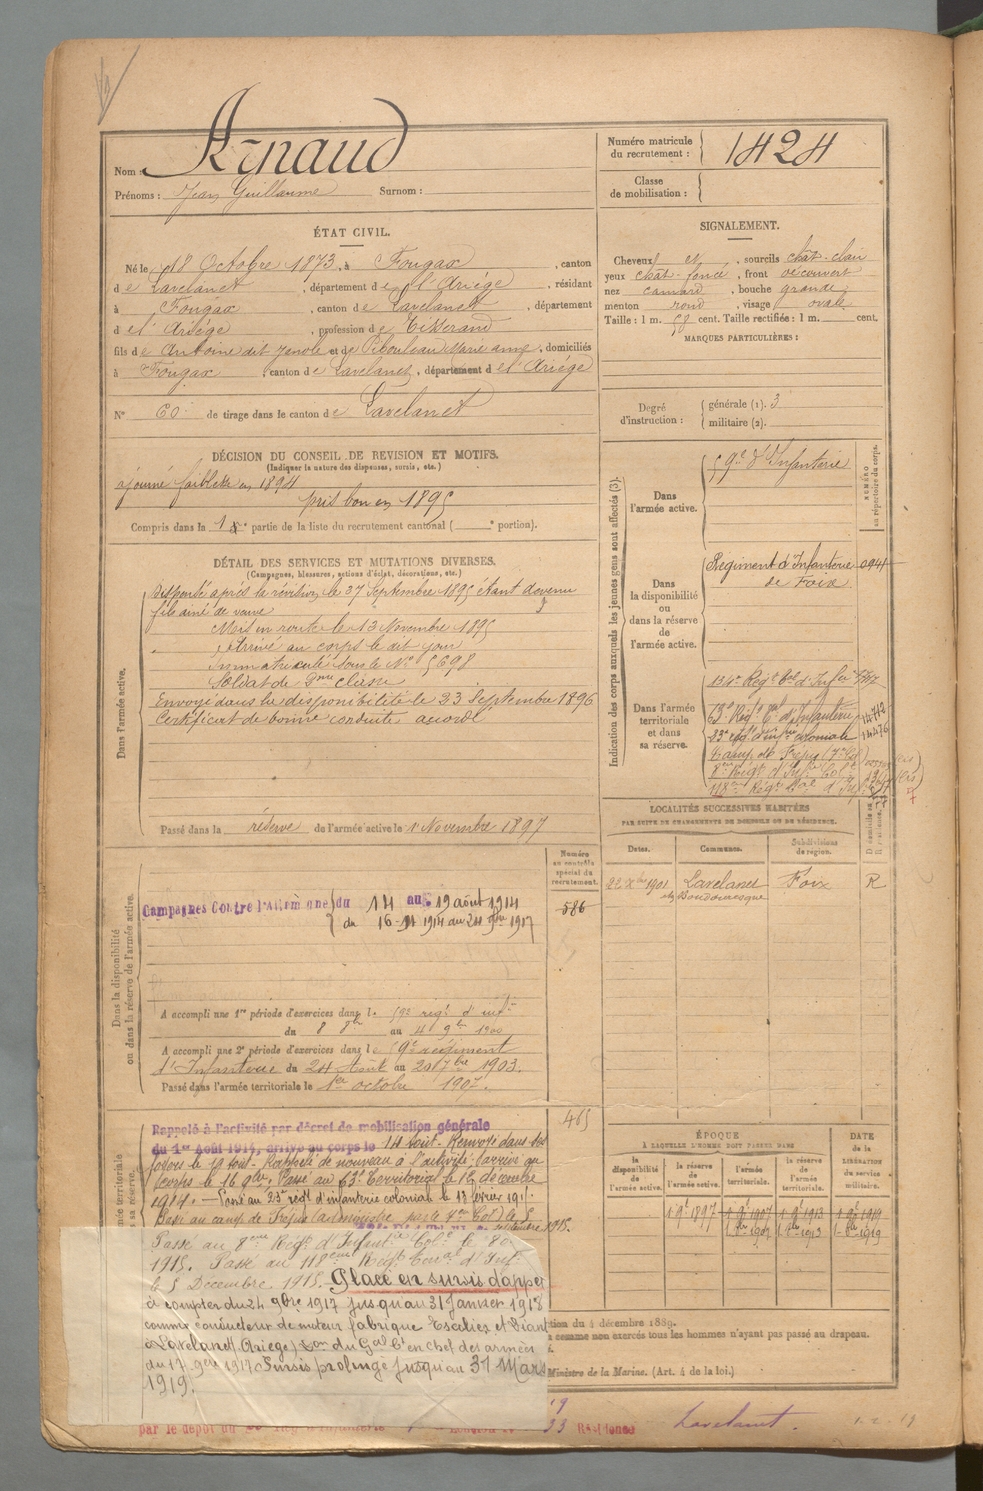 Nom : Arnaud
Prénoms : Jean Guillaume Surnom :
Numéro matricule du recrutement : 1424
Classe de mobilisation :
ÉTAT CIVIL.
Né le 18 Octobre 1873, à Fougax, canton
de Lavelanet, département de l'Ariége, résidant
à Fougax, canton de Lavelanet, département
de l'Ariége, profession de Tisserand
fils de Antoine dit et de Marie anne, domiciliés
à Fougax, canton de Lavelanet, département de l'Ariége
N° 60 de tirage dans le canton de Lavelanet
SIGNALEMENT.
Cheveux et, sourcils chât-clair
yeux chât-foncé, front découvert
nez camard, bouche grande
menton rond, visage ovale
Taille : 1 m. 58 cent. Taille rectifiée : 1 m. cent.
MARQUES PARTICULIÈRES :
Degré d'instruction : générale (1). 3
militaire (2).
DÉCISION DU CONSEIL DE REVISION ET MOTIFS.
(Indiquer la nature des dispenses, sursis, etc.)
ajourné faiblesse en 1894
pris bon en 1895
Compris dans la 1 partie de la liste du recrutement cantonal ( portion).
DÉTAIL DES SERVICES ET MUTATIONS DIVERSES.
(Campagnes, blessures, actions d'éclat, décorations, etc.)
Dans l'armée active.
Dispensé après la révision le 27 Septembre 1895 étant devenu
fils aîné de veuve
Mis en route le 13 Novembre 1895
Arrivé au corps le dit jour
Immatriculé sous le N° 5698
Soldat de 2me classe
Envoyé dans la disponibilité le 23 Septembre 1896
Certificat de bonne conduite accordé
Passé dans la réserve de l'armée active le 1 Novembre 1897
Indication des corps auxquels les jeunes gens sont affectés (3).
NUMÉRO au répertoire du corps.
Dans l'armée active.
59e d'Infanterie
Dans la disponibilité ou dans la réserve de l'armée active.
Régiment d'Infanterie
de Foix
Dans l'armée territoriale et dans sa réserve.
134e Régt
63e Régt d'Infanterie
23e régt d'infrie coloniale
Camp de Fréjus
8me Regt d'Infrie Colle
118me Régt d'Inf
LOCALITÉS SUCCESSIVES HABITÉES
PAR SUITE DE CHANGEMENTS DE DOMICILE OU DE RÉSIDENCE.
Dates. Communes. Subdivisions de région.
1901 Lavelanet Foix R
Dans la disponibilité ou dans la réserve de l'armée active.
Numéro au contrôle spécial du recrutement.
586
Campagnes Contre l'Allemagne du 14 au 19 août 1914
du 16-11 1914 au 24 9bre 1917
A accompli une 1re période d'exercices dans le 59e régt d'infie
du 8 8bre au 4 9bre 1900
A accompli une 2e période d'exercices dans le 59e régiment
d'Infanterie du 24 Août au 20 7bre 1903.
Passé dans l'armée territoriale le 1er octobre 1907.
465
Rappelé à l'activité par décret de mobilisation générale
du 1er Août 1914, arrivé au corps le 14 août. Renvoyé dans ses
foyers le 19 août. Rappelé de nouveau à l'activité, arrivé au
corps le 16 9bre. Passé au 63e Territorial le 12 décembre
1914. Passé au 23e régt d'infanterie coloniale le 13 février 1915.
Passé au camp de Fréjus
septembre 1915.
Passé au 8eme Régt d'Infantrie Colle le
1915. Passé au 118eme Régt d'Inf.
le 5 Décembre 1915. Placé en sursis d'appel
à compter du 24 9bre 1917 jusqu'au 31 Janvier 1918
comme conducteur de moteur fabrique
à Lavelanet (Ariège) Don du Gal Ct en chef des armées
du 17 9bre 1917 Sursis prolongé jusqu'au 31 Mars
1919.
ÉPOQUE
À LAQUELLE L'HOMME DOIT PASSER DANS
DATE DE LA LIBÉRATION du service militaire.
la disponibilité de l'armée active. la réserve de l'armée active. l'armée territoriale. la réserve de l'armée territoriale.
1 9e 1897 1 9e 1907 1 9e 1913 1 9e 1919
du 4 décembre 1889.
comme non exercés tous les hommes n'ayant pas passé au drapeau.
Ministre de la Marine. (Art. 4 de la loi.)
par le dépôt du Résidence Lavelanet.